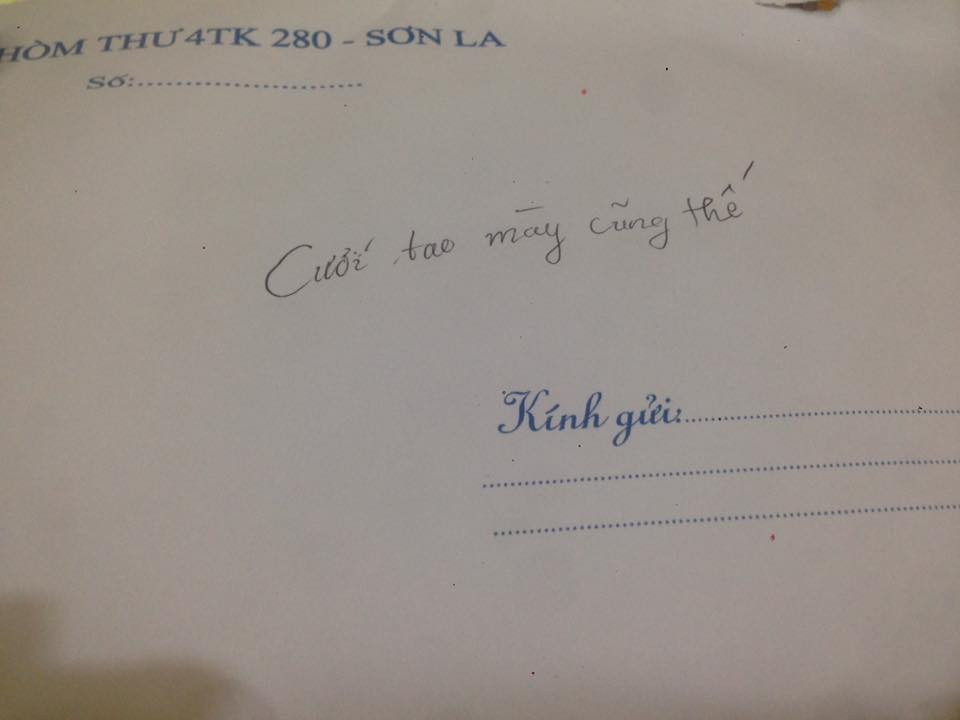 HÒM THƯ 4TK 280 - SƠN LA
Số:........................
Cưới tao mày cũng thế
Kính gửi:........................